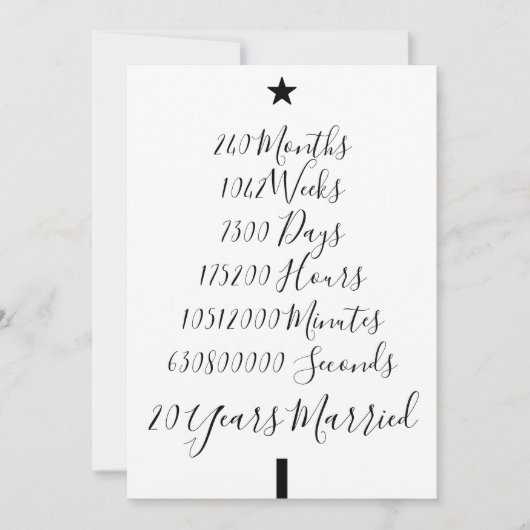 240 Months
1042 Weeks
7300 Days
175200 Hours
10512000 Minutes
630800000 Seconds
20 Years Married